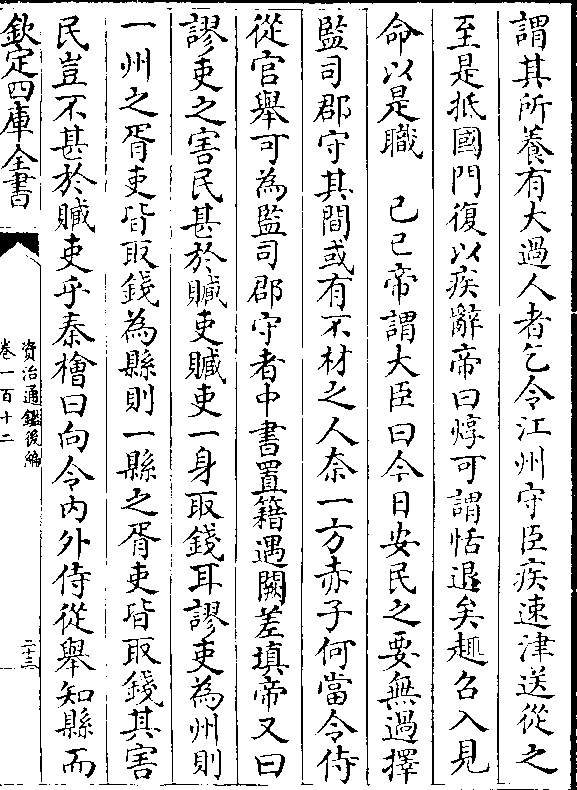 謂其所養有大過人者乞令江州守臣疾速津送從之
至是抵國門復以疾辭帝曰焞可謂恬退矣趣召入見
命以是職　己巳帝謂大臣曰今日安民之要無過擇
監司郡守其間或有不材之人奈一方赤子何當令侍
從官舉可為監司郡守者中書置籍遇闕差填帝又曰
謬吏之害民甚於贓吏贓吏一身取錢耳謬吏為州則
一州之胥吏皆取錢為縣則一縣之胥吏皆取錢其害
民豈不甚於贓吏乎秦檜曰向令內外侍從舉知縣而
欽定四庫全書
資治通鑑後編
卷一百十二
二十三